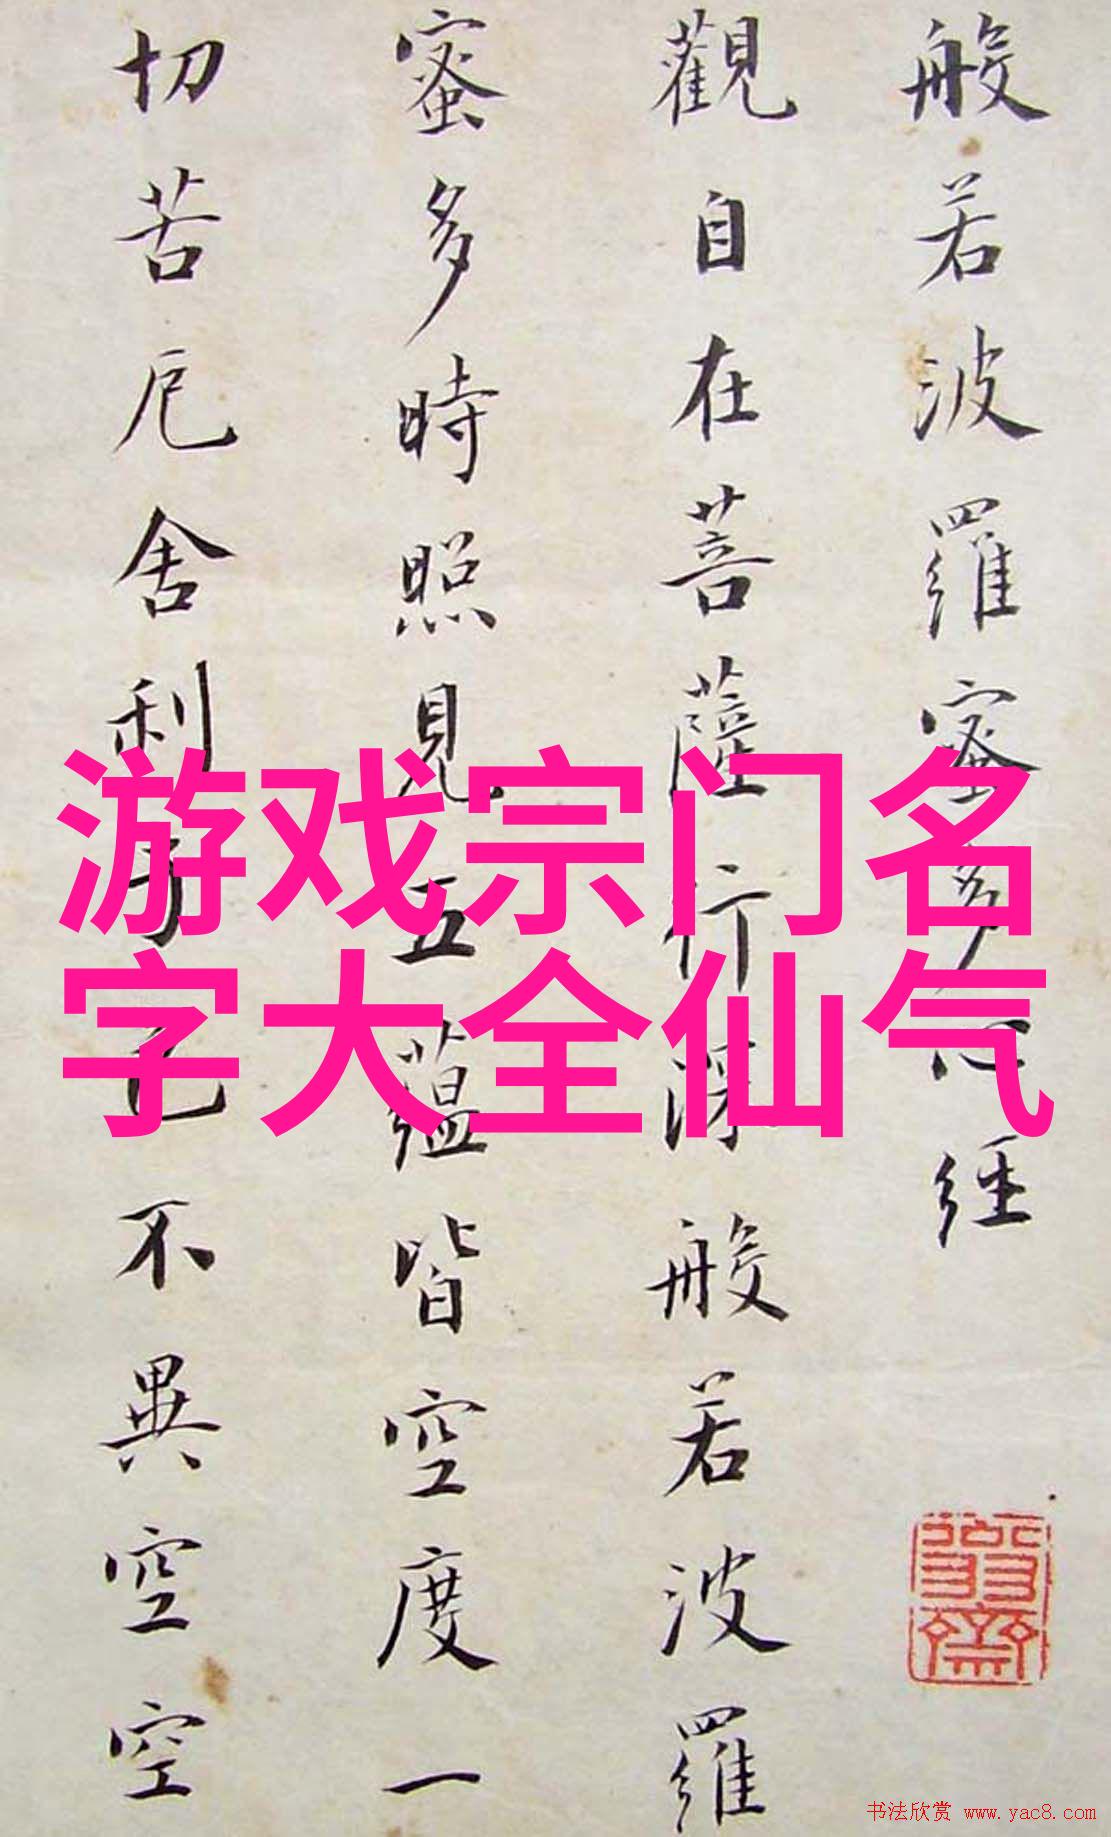 般若波羅蜜多心經
觀自在菩薩行深般若波羅
蜜多時照見五蘊皆空度一
切苦厄舍利子色不異空空
游戏宗门名
字大全仙气
书法欣赏 www.yac8.com